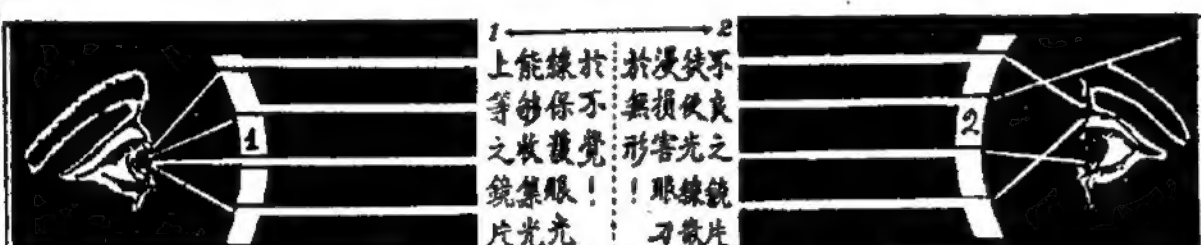 1 2
上等之鏡片
能夠收集光
線保護眼光
於不覺！
不良之鏡片
徒使光線散
漫損害眼力
於無形！
1
2